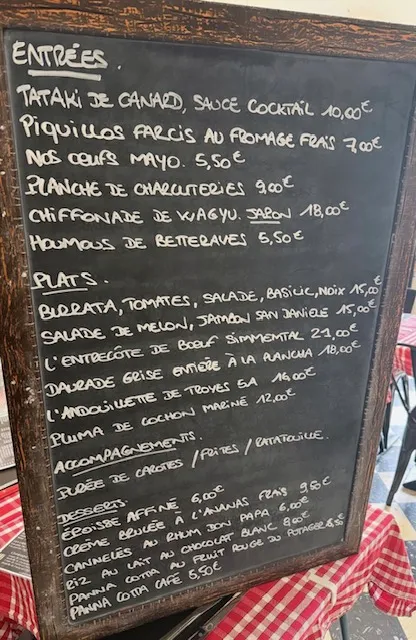 ENTRÉES.
TATAKI DE CANARD, SAUCE COCKTAIL 10,00€
PIQUILLOS FARCIS AU FROMAGE FRAIS 7,00€
NOS OEUFS MAYO. 5,50€
PLANCHE DE CHARCUTERIES 9,00€
CHIFFONADE DE WAGYU. JAPON 18,00€
HOUMOUS DE BETTERAVES 5,50€
PLATS.
BURRATA, TOMATES, SALADE, BASILIC, NOIX 15,00€
SALADE DE MELON, JAMBON SAN DANIELE 15,00€
L'ENTRECÔTE DE BOEUF SIMMEMTAL 21,00€
DAURADE GRISE ENTIÈRE À LA PLANCHA 18,00€
L'ANDOUILLETTE DE TROYES 5A 16,00€
PLUMA DE COCHON MARINÉ 12,00€
ACCOMPAGNEMENTS.
PURÉE DE CAROTES / FRITES / RATATOUILLE.
DESSERTS.
ÉPOISSE AFFINÉ 6,00€
CRÈME BRULÉE À L'ANANAS FRAIS 9,50€
CANNELÉS AU RHUM DON PAPA 6,00€
RIZ AU LAIT AU CHOCOLAT BLANC 8,00€
PANNA COTTA AU FRUIT ROUGE DU POTAGER
PANNA COTTA CAFÉ 5,50€